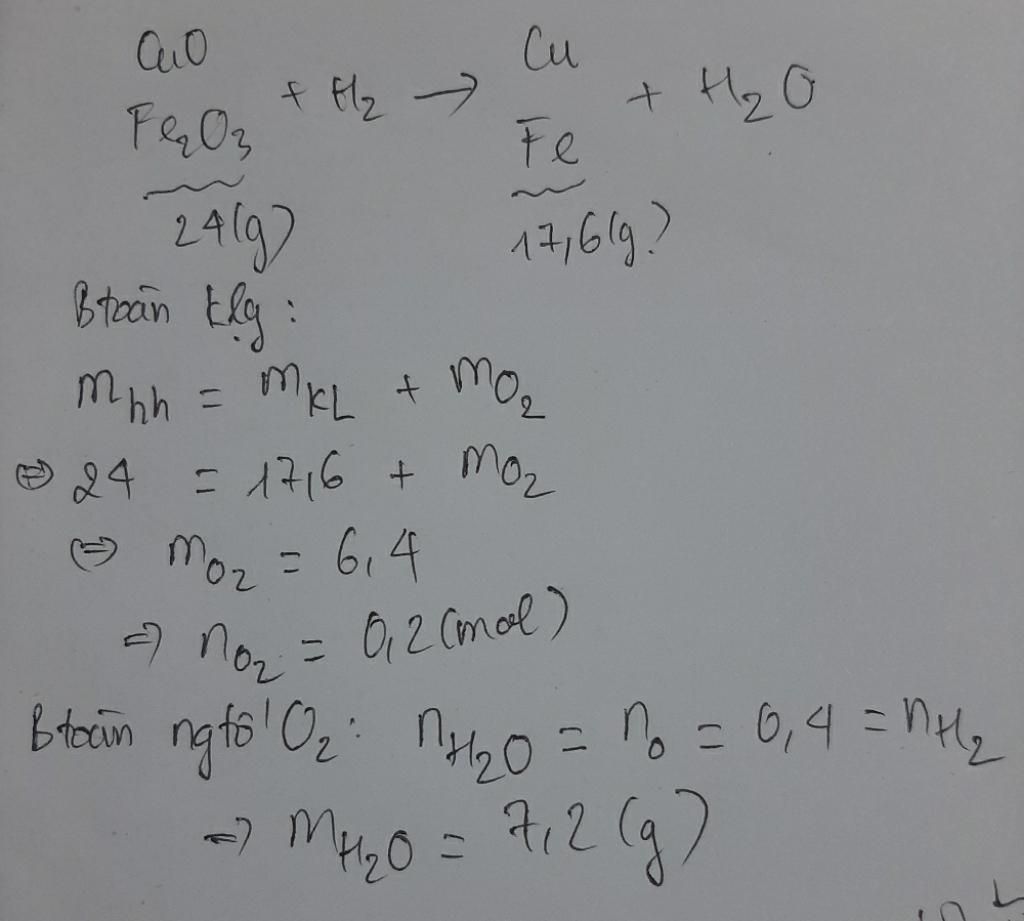 CuO Cu
Fe₂O₃ + H₂ → Fe + H₂O
24(g) 17,6(g)
Btoàn klg :
m hh = m KL + m O₂
⇔ 24 = 17,6 + m O₂
⇔ m O₂ = 6,4
⇒ n O₂ = 0,2 (mol)
Btoàn ngtố O₂ : n H₂O = n O = 0,4 = n H₂
⇒ m H₂O = 7,2 (g)